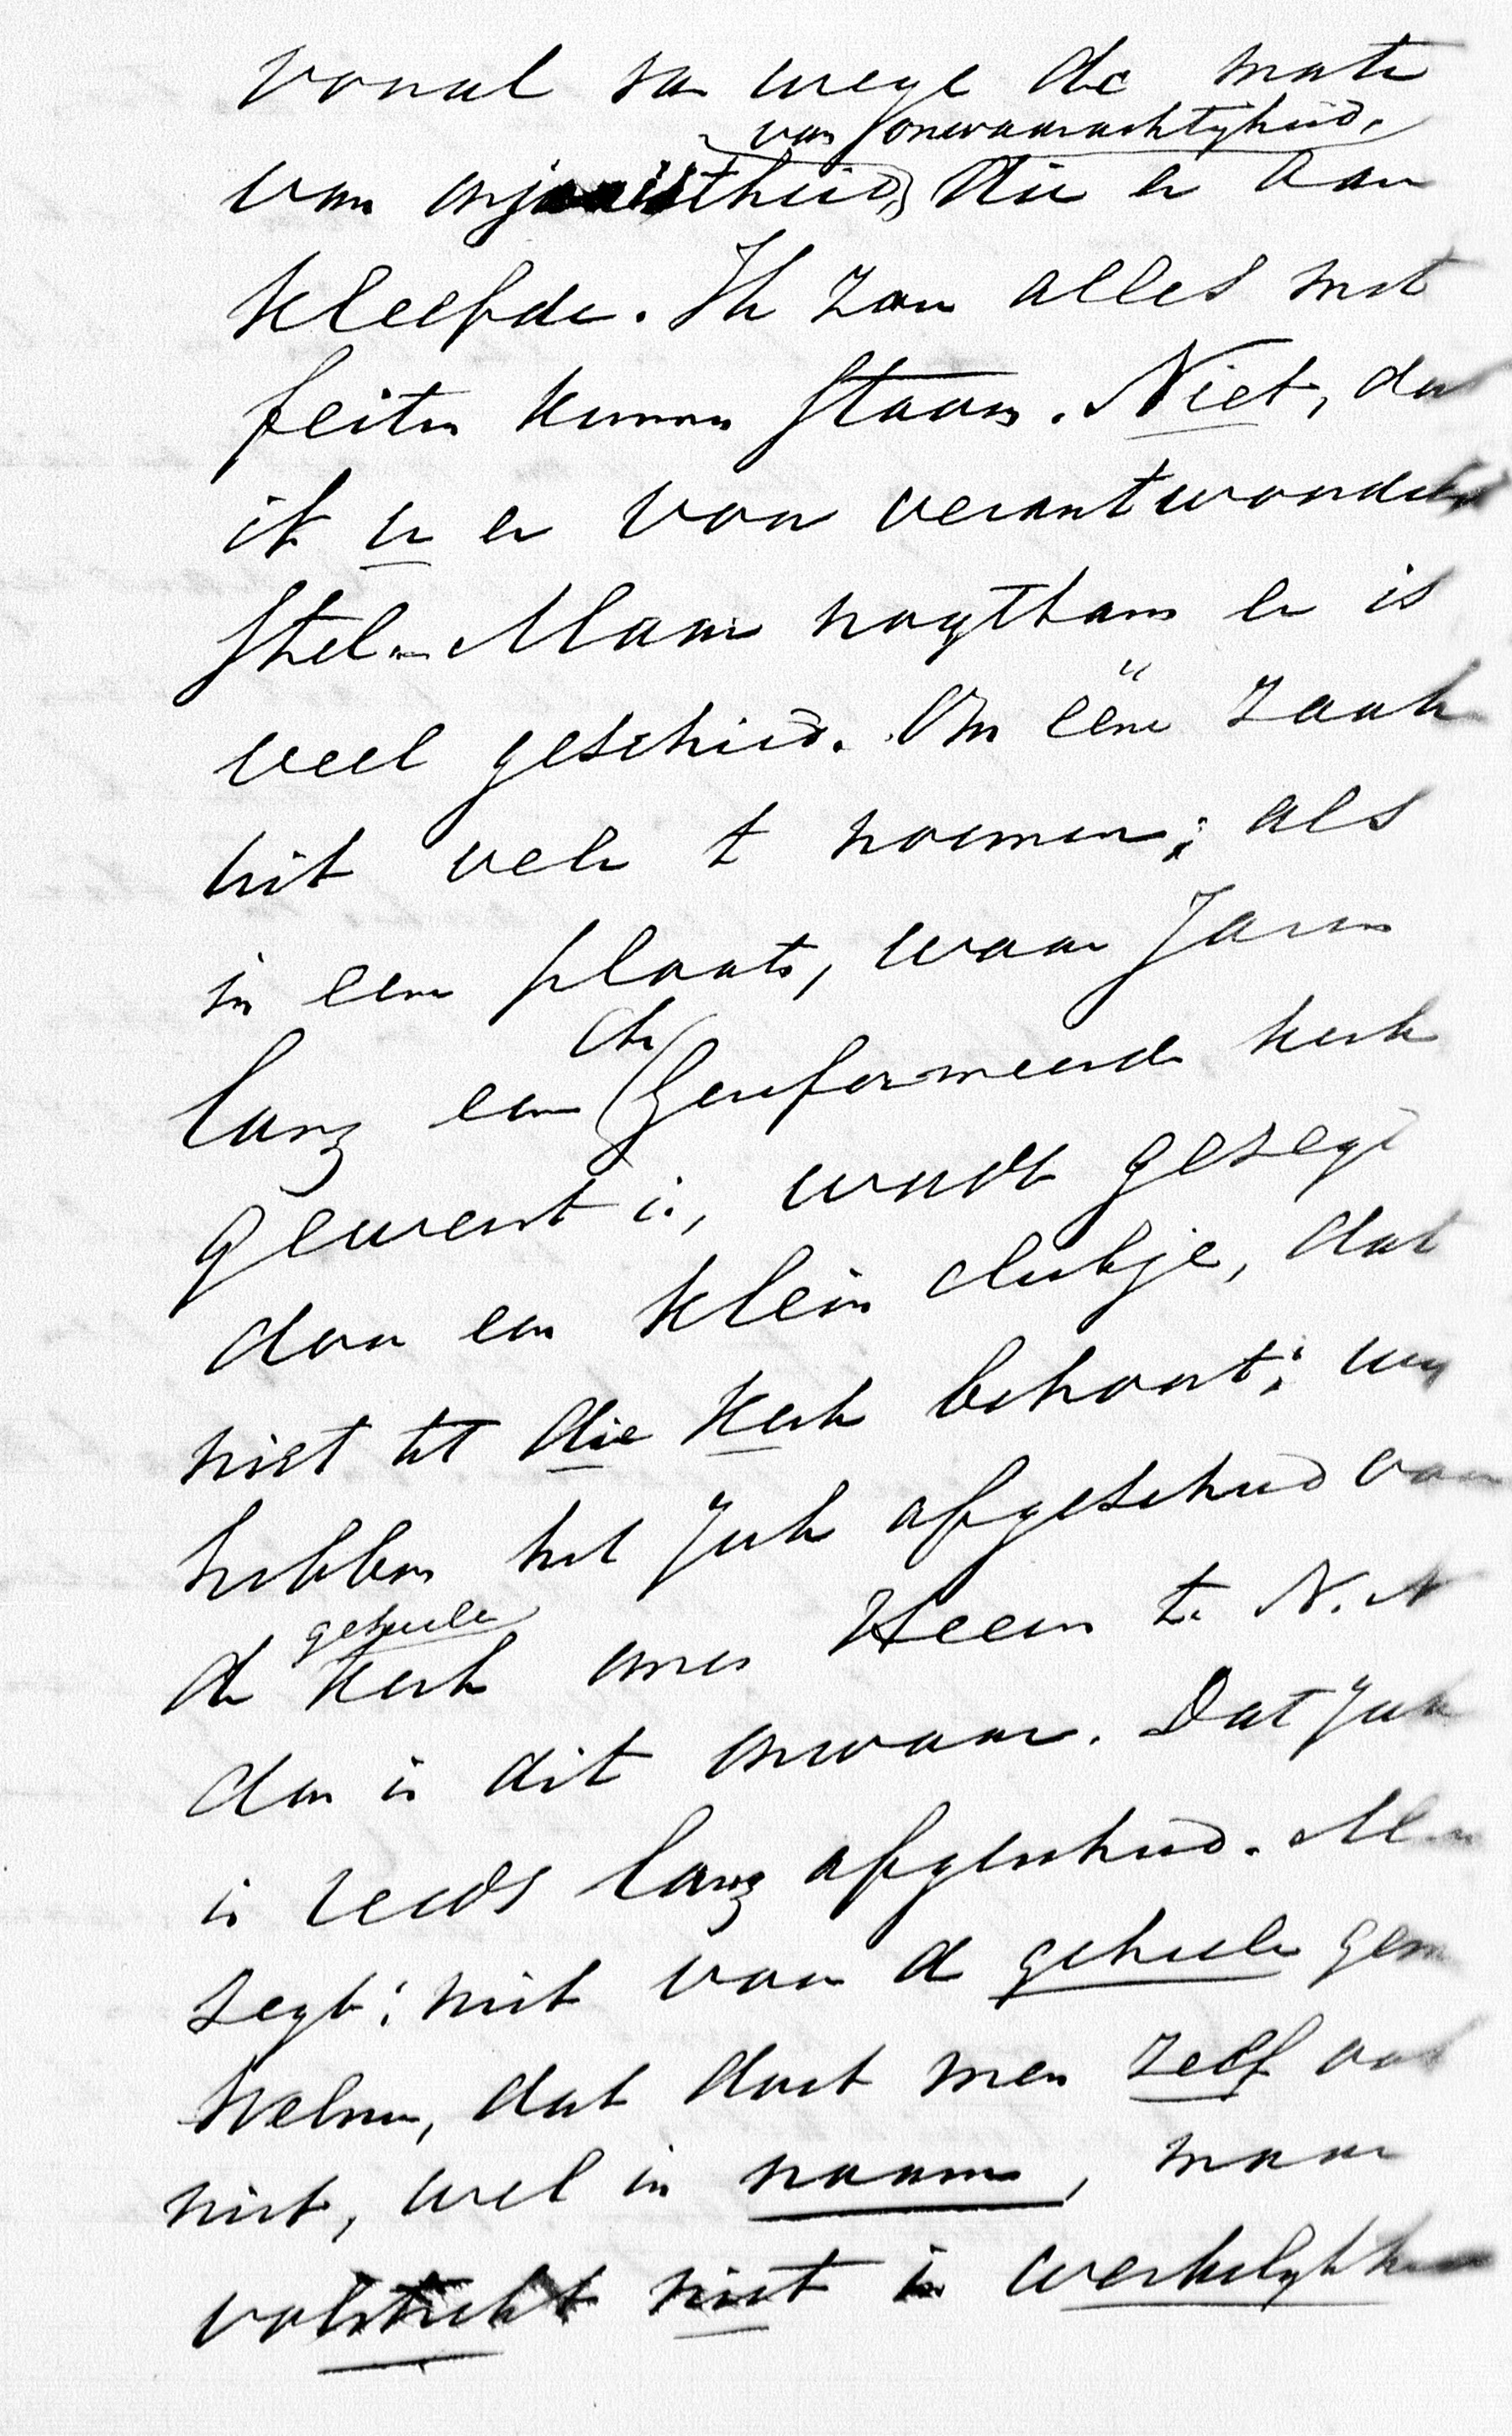 vooral van wege de mate
van onwaarachtigheid,
van onjuistheid, die er aan
kleefde. Ik zou alles met
feiten kunnen staven. Niet, dat
ik u er voor verantwoordelijk
stel. Maar nogthans er is
veel geschied. Om eene zaak
uit vele te noemen; als
in eene plaats, waar jaren
Chr
lang een Gereformeerde kerk
geweest is, wordt gezegd
door een klein clubje, dat
niet tot die Kerk behoort; wij
hebben het juk afgeschud voor
geheele
de Kerk onzes Heeren te N.N
dan is dit onwaar. Dat juk
is reeds lang afgeschud. Men
zegt: niet voor de geheele gem
Welnu, dat doet men zelf ook
niet, wel in naam, maar
volstrekt niet in werkelijkheid